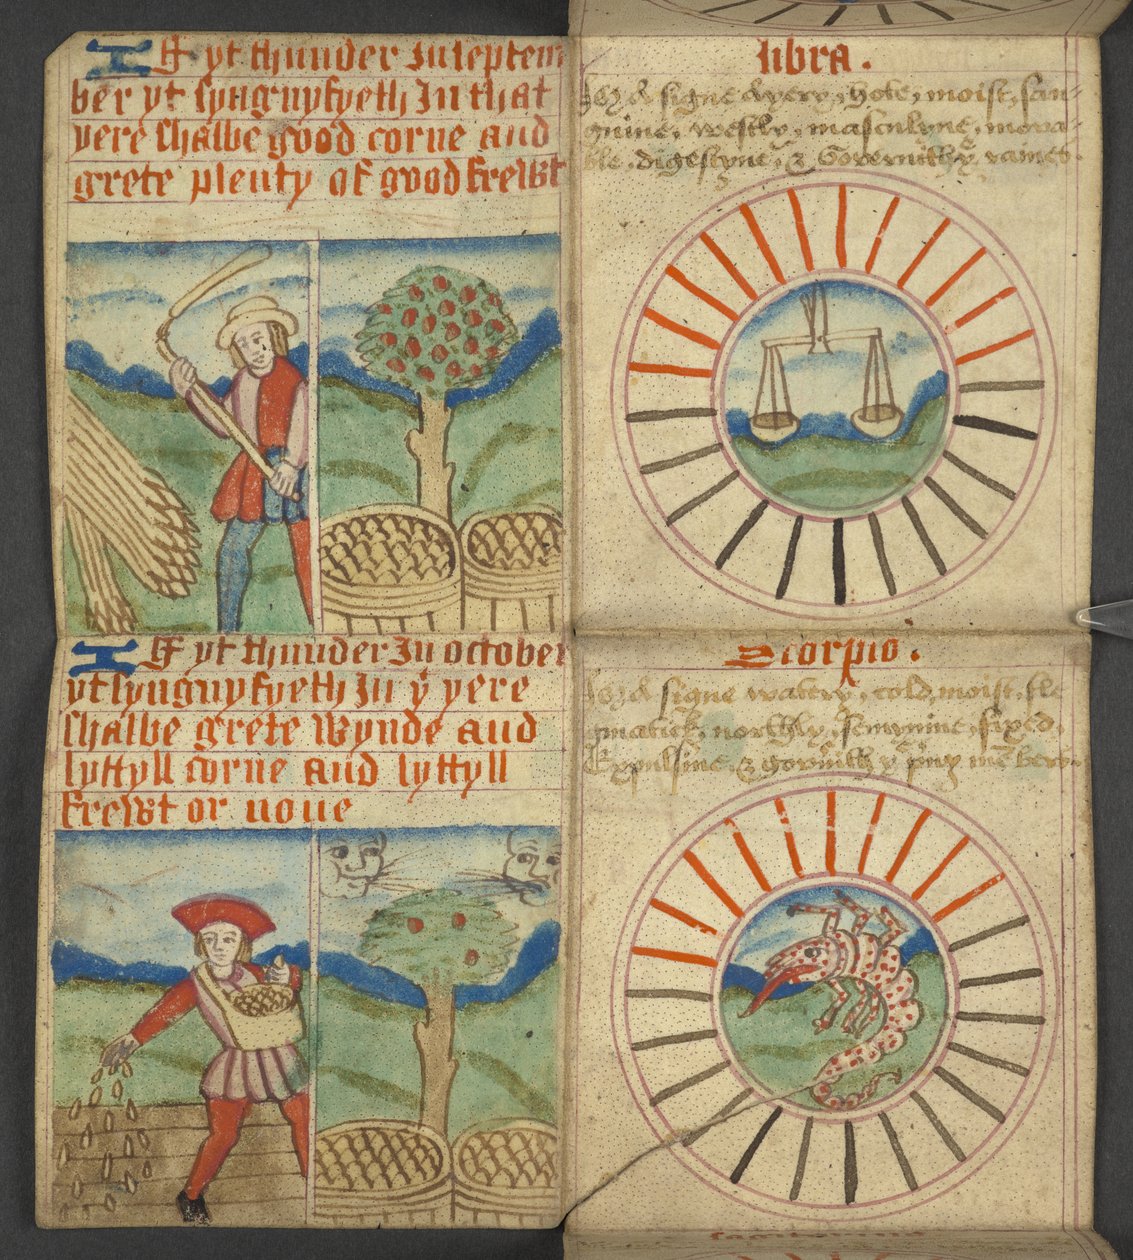 If yt thunder In septem
ber yt syngnyfyeth In that
yere shalbe good corne and
grete plenty of good frewt
libra.
is a signe Ayery, hote, moist, san-
guine, westly, masculyne, mova-
ble, digestyne, & Governithy raines.
If yt thunder In october
yt syngnyfyeth In yͤ yere
shalbe grete wynde and
lyttyll corne and lyttyll
frewt or none
Scorpio.
is a signe watery, cold, moist, fle
gmatick, northly, femynine, fixed,
Expulsine, &